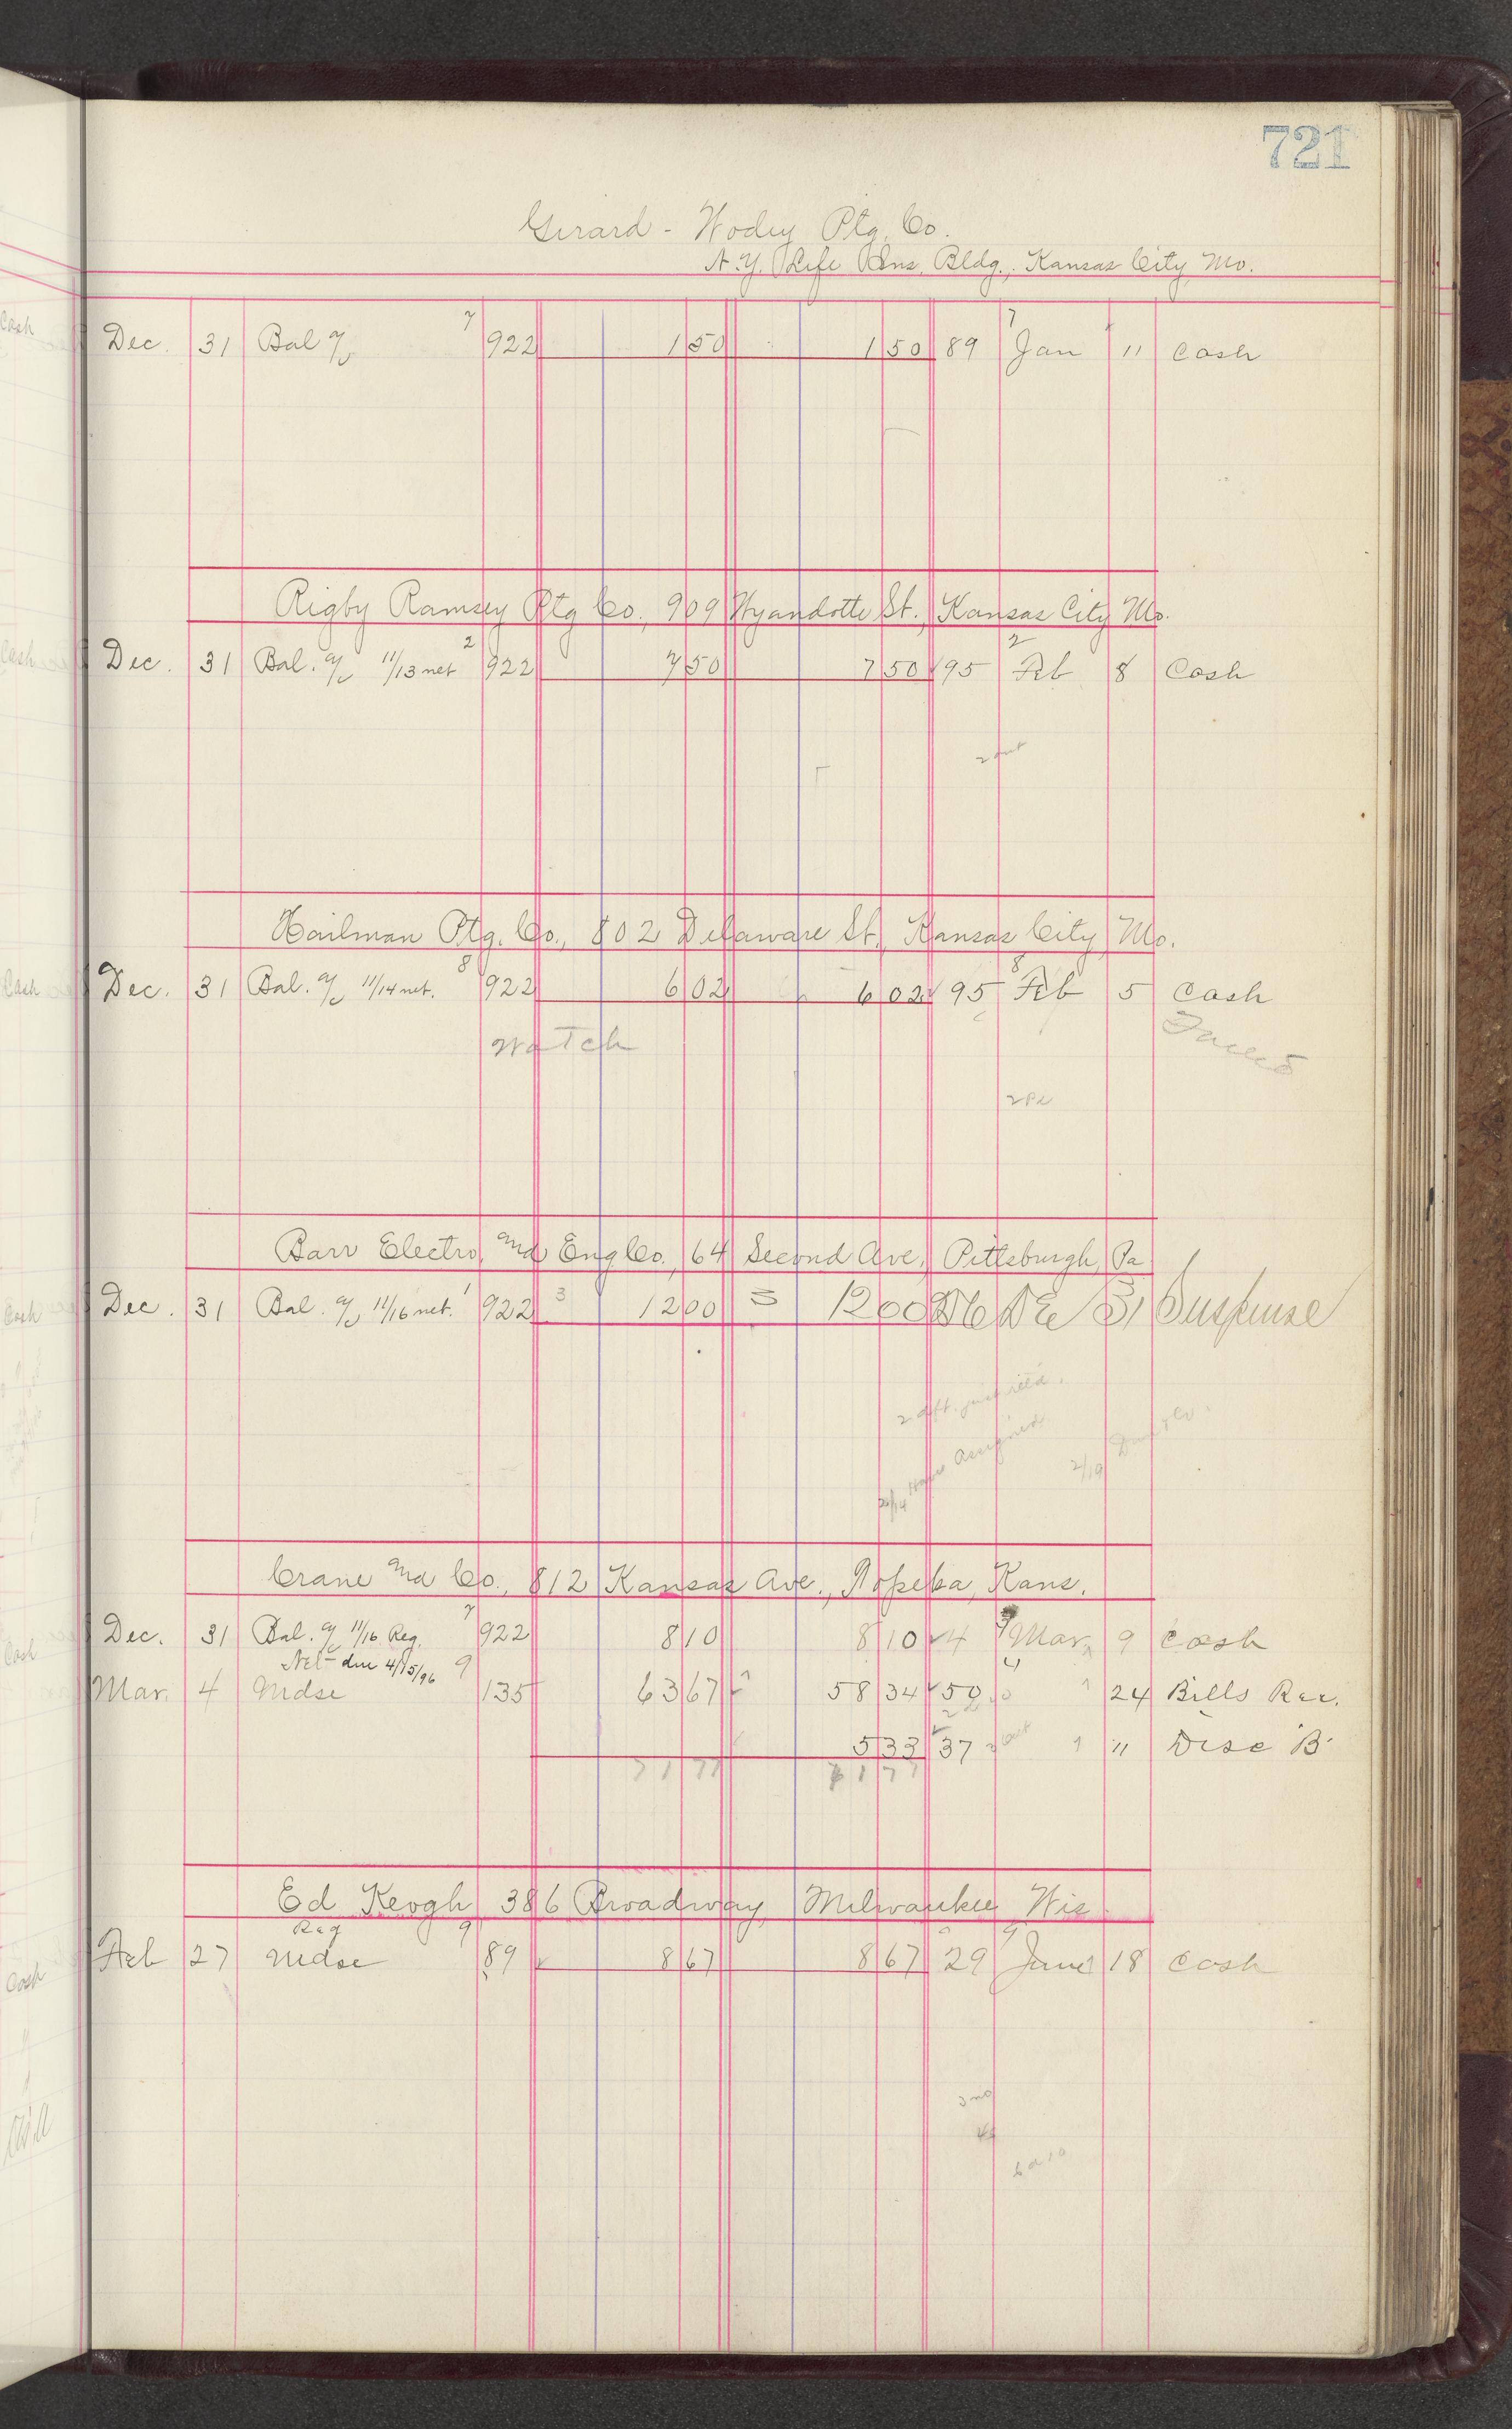 721
Girard - Wodey Ptg. Co.
N.Y. Life Ins. Bldg., Kansas City Mo.
Dec. 31 Bal a/c 7 922 1 50 1 50 89 7 Jan 11 Cash
Rigby Ramsey Ptg Co., 909 Wyandotte St., Kansas City Mo.
Dec. 31 Bal. a/c 11/13 net 2 922 7 50 7 50 95 2 Feb 8 Cash
Hailman Ptg. Co., 802 Delaware St., Kansas City Mo.
Dec. 31 Bal. a/c 11/14 net. 8 922 6 02 6 02 95 8 Feb 5 Cash
Watch
Barr Electro Mch Eng Co., 64 Second Ave., Pittsburgh, Pa
Dec. 31 Bal. a/c 11/16 net. 1 922 3 12 00 12 00 De 31 Suspense
2 dft. just retd.
Have Assigned
2/19
Crane & Co., 812 Kansas Ave., Topeka, Kans.
Dec. 31 Bal. a/c 11/16 Reg. 7 922 8 10 8 10 4 Mar. 9 Cash
Net due 4/15/96 9
Mar. 4 Mdse 135 63 67 58 34 50 " 24 Bills Rec.
5 33 37 " " Disc B
71 77 71 77
Ed Keogh, 386 Broadway, Milwaukee Wis.
Reg 9
Feb 27 Mdse 89 8 67 8 67 29 9 June 18 Cash